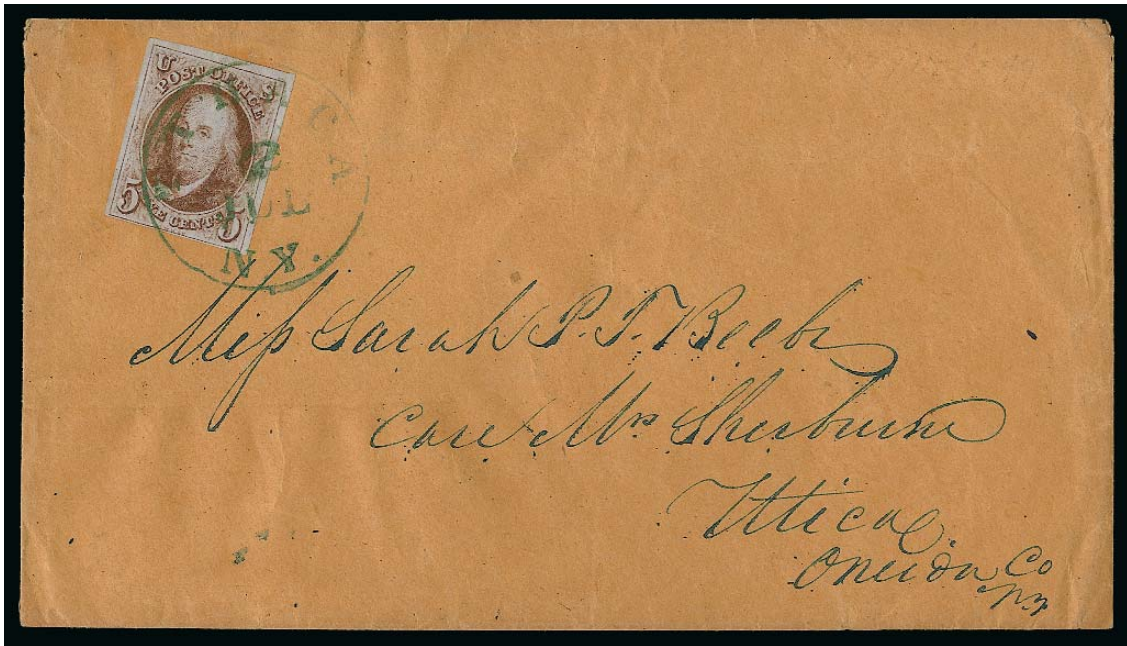 U S
POST OFFICE
5 FIVE CENTS 5
JUL
N.Y.
Miss Sarah P. T. Beebe
Care Mrs Sherburne
Utica
Oneida Co
N.Y.